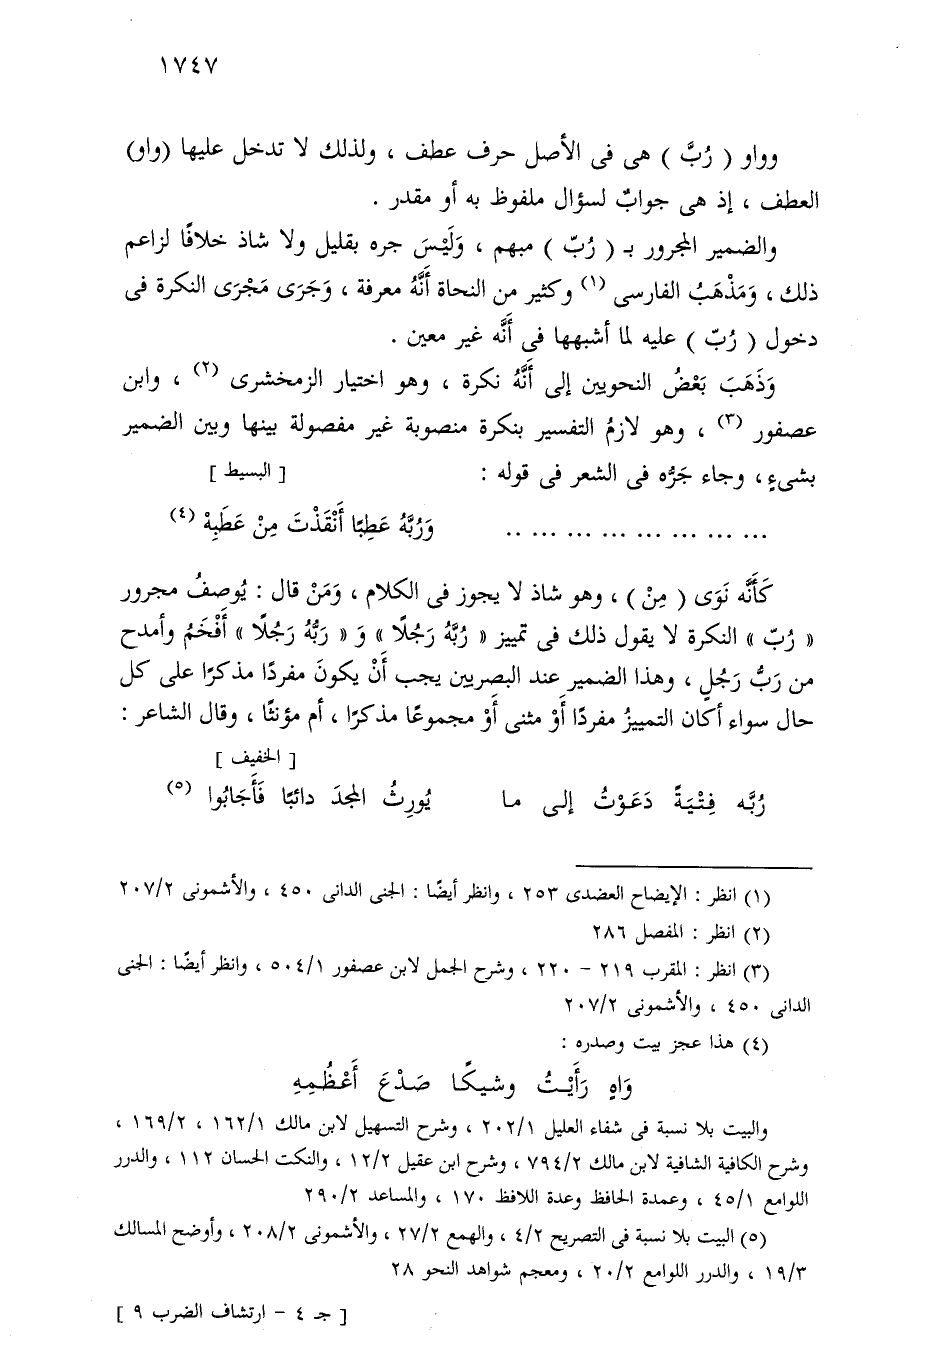 ١٧٤٧
وواو ( رُبَّ ) هى فى الأصل حرف عطف ، ولذلك لا تدخل عليها (واو)
العطف ، إذ هى جوابٌ لسؤال ملفوظ به أو مقدر .
والضمير المجرور بـ ( رُبّ ) مبهم ، وَلَيْسَ جره بقليل ولا شاذ خلافًا لزاعم
ذلك ، وَمَذْهَبُ الفارسى (١) وكثير من النحاة أَنَّهُ معرفة ، وَجَرَى مَجْرَى النكرة فى
دخول ( رُبّ ) عليه لما أشبهها فى أَنَّه غير معين .
وَذَهَبَ بَعْضُ النحويين إلى أَنَّهُ نكرة ، وهو اختيار الزمخشرى (٢) ، وابن
عصفور (٣) ، وهو لازمُ التفسير بنكرة منصوبة غير مفصولة بينها وبين الضمير
بشىءٍ ، وجاء جَرُّه فى الشعر فى قوله : [ البسيط ]
... ... ... ... ... ... ... .. وَرُبَّهُ عَطِبًا أَنْقَذْتَ مِنْ عَطَبِهْ (٤)
كَأَنَّه نَوَى ( مِنْ ) ، وهو شاذ لا يجوز فى الكلام ، وَمَنْ قال : يُوصفُ مجرور
« رُبّ » النكرة لا يقول ذلك فى تمييز « رُبَّهُ رَجُلًا » وَ « رَبُّهُ رَجُلًا » أَفْخَمُ وأمدح
من رَبُّ رَجُلٍ ، وهذا الضمير عند البصريين يجب أَنْ يكونَ مفردًا مذكرًا على كل
حال سواء أكان التمييزُ مفردًا أَوْ مثنى أَوْ مجموعًا مذكرًا ، أم مؤنثًا ، وقال الشاعر :
[ الخفيف ]
رُبَّه فِتْيَةً دَعَوْتُ إلى ما يُورِثُ المجدَ دائبًا فَأَجَابُوا (٥)
(١) انظر : الإيضاح العضدى ٢٥٣ ، وانظر أيضًا : الجنى الدانى ٤٥٠ ، والأشمونى ٢٠٧/٢
(٢) انظر : المفصل ٢٨٦
(٣) انظر : المقرب ٢١٩ - ٢٢٠ ، وشرح الجمل لابن عصفور ٥٠٤/١ ، وانظر أيضًا : الجنى
الدانى ٤٥٠ ، والأشمونى ٢٠٧/٢
(٤) هذا عجز بيت وصدره :
وَاهٍ رَأَيْتُ وشيكًا صَدْعَ أَعْظُمِهِ
والبيت بلا نسبة فى شفاء العليل ٢٠٢/١ ، وشرح التسهيل لابن مالك ١٦٢/١ ، ١٦٩/٢ ،
وشرح الكافية الشافية لابن مالك ٧٩٤/٢ ، وشرح ابن عقيل ١٢/٢ ، والنكت الحسان ١١٢ ، والدرر
اللوامع ٤٥/١ ، وعمدة الحافظ وعدة اللافظ ١٧٠ ، والمساعد ٢٩٠/٢
(٥) البيت بلا نسبة فى التصريح ٤/٢ ، والهمع ٢٧/٢ ، والأشمونى ٢٠٨/٢ ، وأوضح المسالك
١٩/٣ ، والدرر اللوامع ٢٠/٢ ، ومعجم شواهد النحو ٢٨
[ جـ ٤ - ارتشاف الضرب ٩ ]